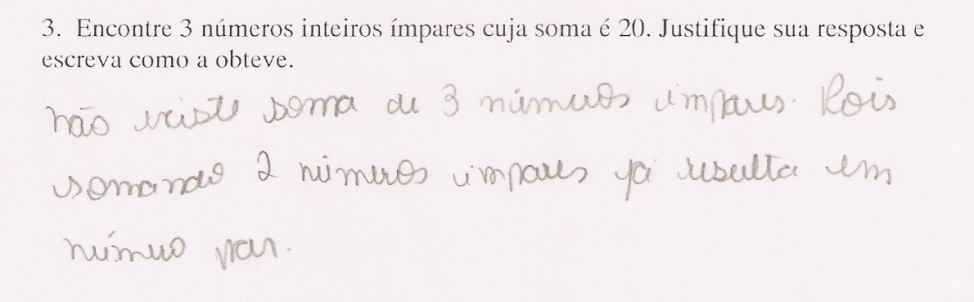 3. Encontre 3 números inteiros ímpares cuja soma é 20. Justifique sua resposta e
escreva como a obteve.
não existe soma de 3 números ímpares. Pois
somando 2 números ímpares já resulta em
número par.